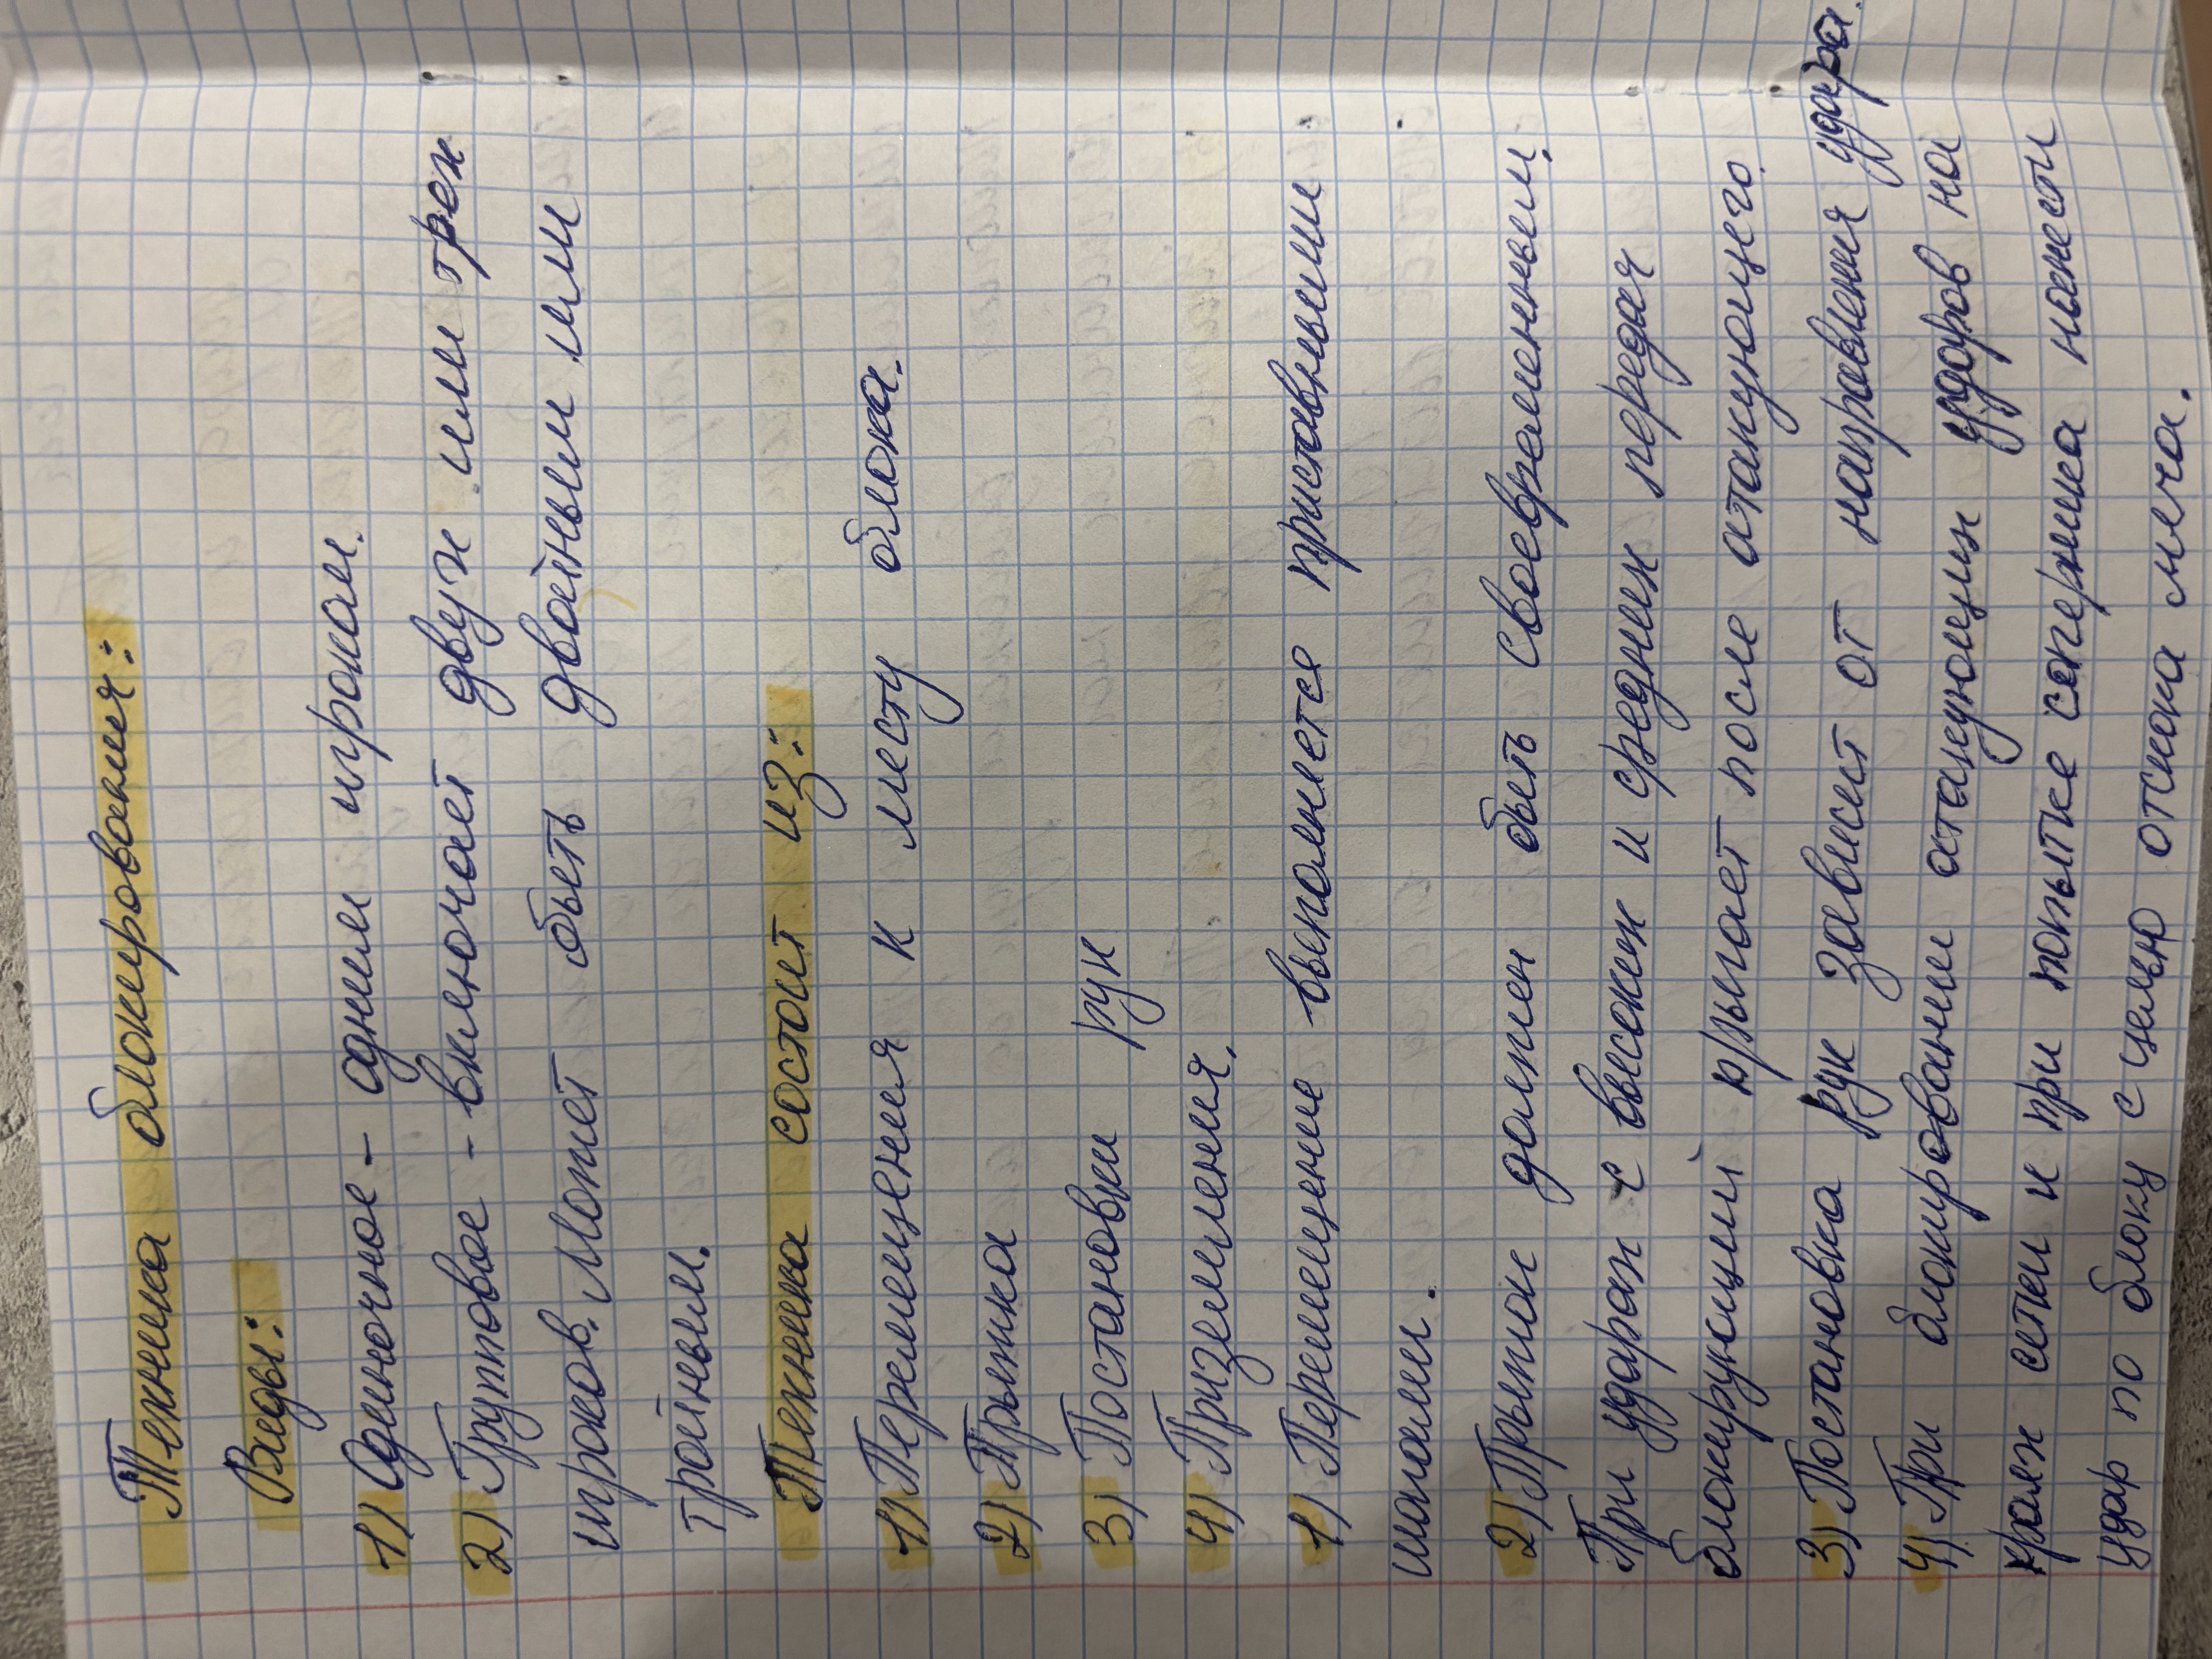 Техника блокирования:
Виды:
1) Одиночное - одним игроком.
2) Групповое - включает двух или трех
игроков. Может быть двойным или
тройным.
Техника состоит из:
1) Перемещения к месту блока.
2) Прыжка
3) Постановки рук
4) Приземления.
1) Перемещение выполняется приставными
шагами.
2) Прыжок должен быть своевременным.
При ударах с высоких и средних передач
блокирующий прыгает после атакующего.
3) Постановка рук зависит от направления удара.
4) При блокировании атакующих ударов на
краях сетки и при попытке соперника нанести
удар по блоку с целью отскока мяча.